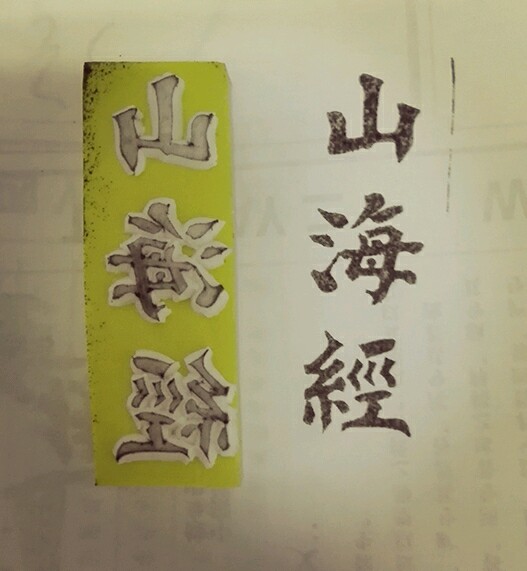 山海經
山海經